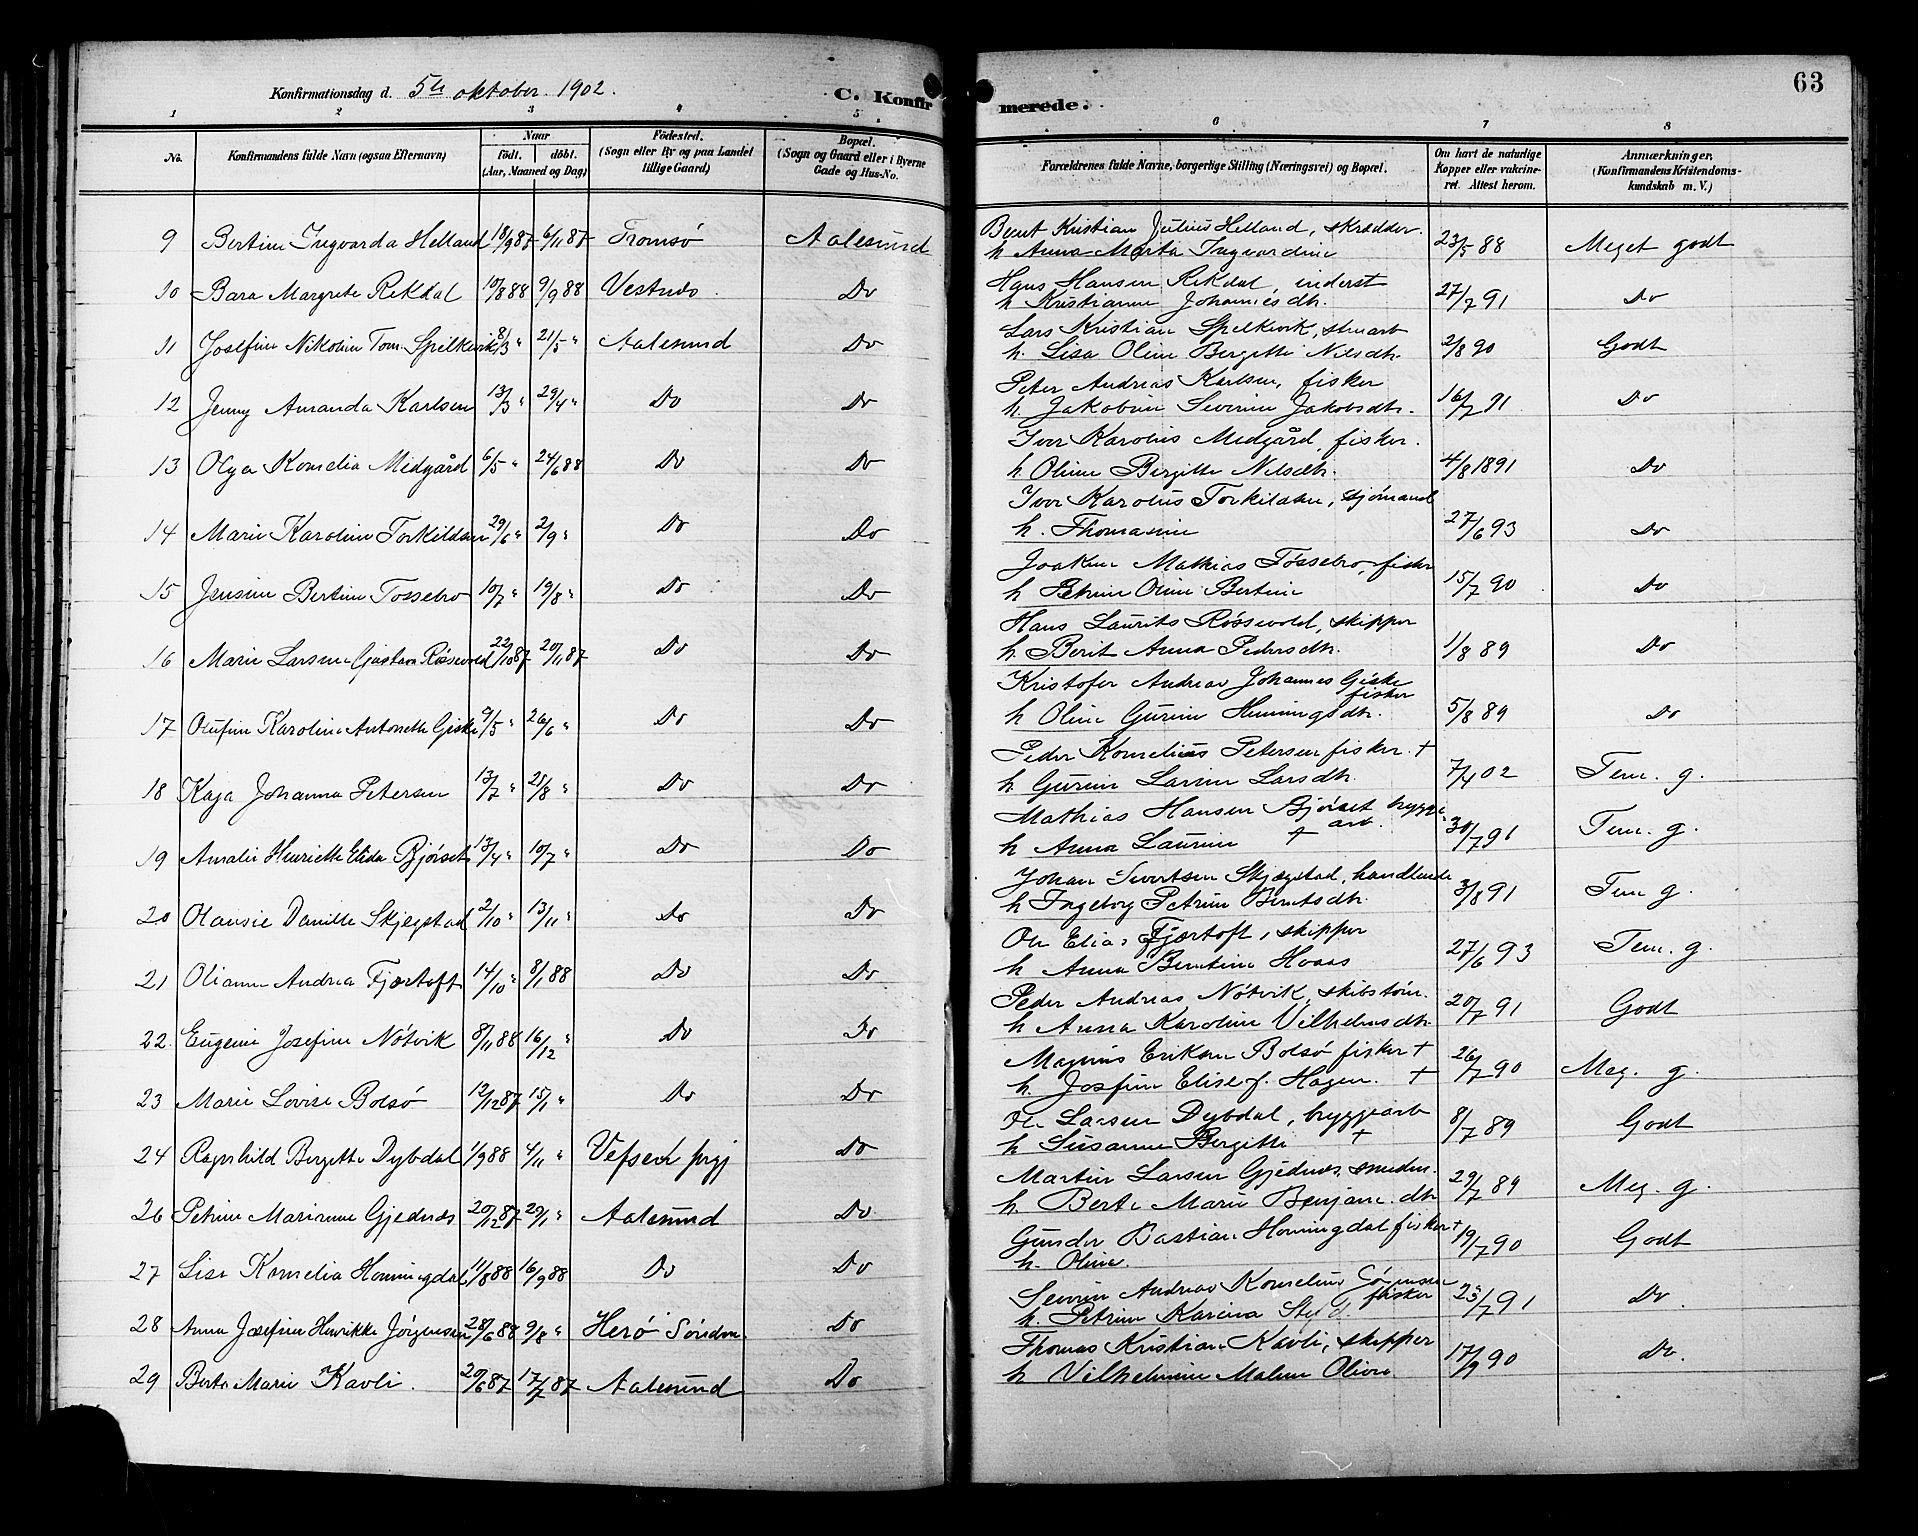 63
Konfirmationsdag d. 5te oktober 1902.
C. Konfirmerede.
1 2 3 4 5 6 7 8
No.
Konfirmandens fulde Navn (ogsaa Efternavn)
Naar
født. døbt.
(Aar, Maaned og Dag)
Fødested.
(Sogn eller By og paa Landet
tillige Gaard)
Bopæl.
(Sogn og Gaard eller i Byerne
Gade og Hus-No.
Forældrenes fulde Navne, borgerlige Stilling (Næringsvei) og Bopæl.
Om havt de naturlige
Kopper eller vakcine-
ret. Attest herom.
Anmærkninger.
(Konfirmandens Kristendoms-
kundskab m. V.)
9 Bertine Ingvarda Helland 18/9 87 6/11 87 Tromsö Aalesund Bernt Kristian Julius Helland, skrædder. 23/5 88 Meget godt
h Anna Marta Ingvardine
10 Bara Margrete Rekdal 10/8 88 9/9 88 Vestnes. Do Hans Hansen Rekdal, inderst 27/7 91 Do
h Kristianne Johannesdtr.
11 Josefine Nikoline Tom. Spilkevik 8/3 " 21/5 " Aalesund Do Lars Kristian Spelkevik, stuart 2/8 90 Godt
h. Lisa Oline Bergitte Nilsdtr.
12 Jenny Amanda Karlsen 13/3 " 29/4 " Do Do Peter Andreas Karlsen, fisker 16/7 91 Do
h. Jakobine Severine Jakobsdtr.
13 Olga Kornelia Midgård 6/5 " 24/6 88 Do Do Iver Karolus Midgård, fisker. 4/8 1891 Do
h Oline Bergitte Nilsdtr.
14 Marie Karoline Torkildsen 29/6 " 2/9 " Do Do Iver Karolus Torkildsen, sjömand 27/6 93 Do
h. Thomasine
15 Jensine Bertine Tossebro 10/7 " 19/8 " Do Do Joakim Mathias Tossebro, fisker 15/7 90 Do
h Petrine Oline Bertine
16 Marie Larsine Gustava Rössevold 22/10 87 20/11 87 Do Do Hans Laurits Røssevold, skipper 1/8 89 Do
h. Berit Anna Pedersdtr.
17 Olufine Karoline Antonette Giske 9/5 " 26/6 " Do Do Kristofer Andreas Johannes Giske 5/8 89 Do
fisker
h Oline Gurine Henningsdtr.
18 Kaja Johanna Petersen 13/7 " 28/8 " Do Do Peder Kornelius Petersen fisker. † 7/4 02 Tem. g.
h Gurine Larine Larsdtr.
19 Amalie Henriette Elida Bjørset 13/4 " 10/7 " Do Do Mathias Hansen Bjørset brygge 30/7 91 Tem. g.
arb.
h Anna Laurine †
20 Olausie Danille Skjegstad 2/10 " 13/11 " Do Do Johan Sivertsen Skjegstad, handlende 3/8 91 Tem g.
h Ingeborg Petrine Berntsdtr.
21 Olianne Andrea Fjørtoft 14/10 " 8/1 88 Do Do Ole Elias Fjørtoft, skipper 27/6 93 Tem. g.
h Anna Berntine Hoaas
22 Eugenie Josefine Nötvik 8/11 88 16/12 " Do Do Peder Andreas Nötvik, skibstöm. 20/7 91 Godt
h Anna Karoline Vilhelmsdtr.
23 Marie Lovise Bolsö 12/12 87 15/1 " Do Do Magnus Eriksen Bolsö fisker † 26/7 90 Meg. g.
h. Josefine Elise f. Hagen. †
24 Ragnhild Bergitte Dybdal 1/9 88 4/11 " Vefsen prgj Do Ole Larsen Dybdal, bryggearb 8/7 89 Godt
h Susanne Bergitte †
26 Petrine Marianne Gjednæs 20/12 87 29/1 " Aalesund Do Martin Larsen Gjednæs, smedm. 29/7 89 Meg. g.
h. Berte Marie Benjam. dtr
27 Lise Kornelia Honningdal 11/8 88 16/9 88 Do Do Gunder Bastian Honningdal fisker † 19/7 90 Godt
h. Oline
28 Anna Josefine Henrikke Jørgensen 28/6 88 9/8 " Herö Söndm. Do Severin Andreas Kornelius 23/7 91 Do.
fisker
h. Petrine Karina
29 Berte Marie Kavli. 20/6 87 17/7 87 Aalesund Do Thomas Kristian Kavli, skipper 17/9 90 Do.
h Vilhelmine Malene Olivia